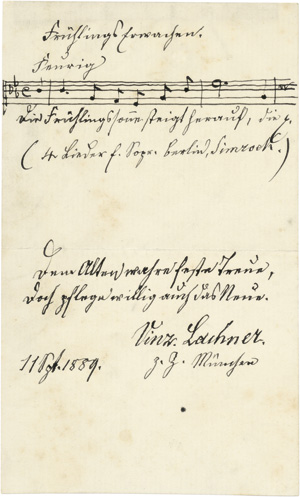 Frühlings Erwachen.
Feurig
Die Frühlingssonne steigt herauf, die
(4 Lieder f. Sopr. Berlin, Simrock.)
Dem Alten wahre feste Treue,
Doch pflege willig auch das Neue.
Vinz. Lachner.
11 Spt. 1889.
z. Z. München